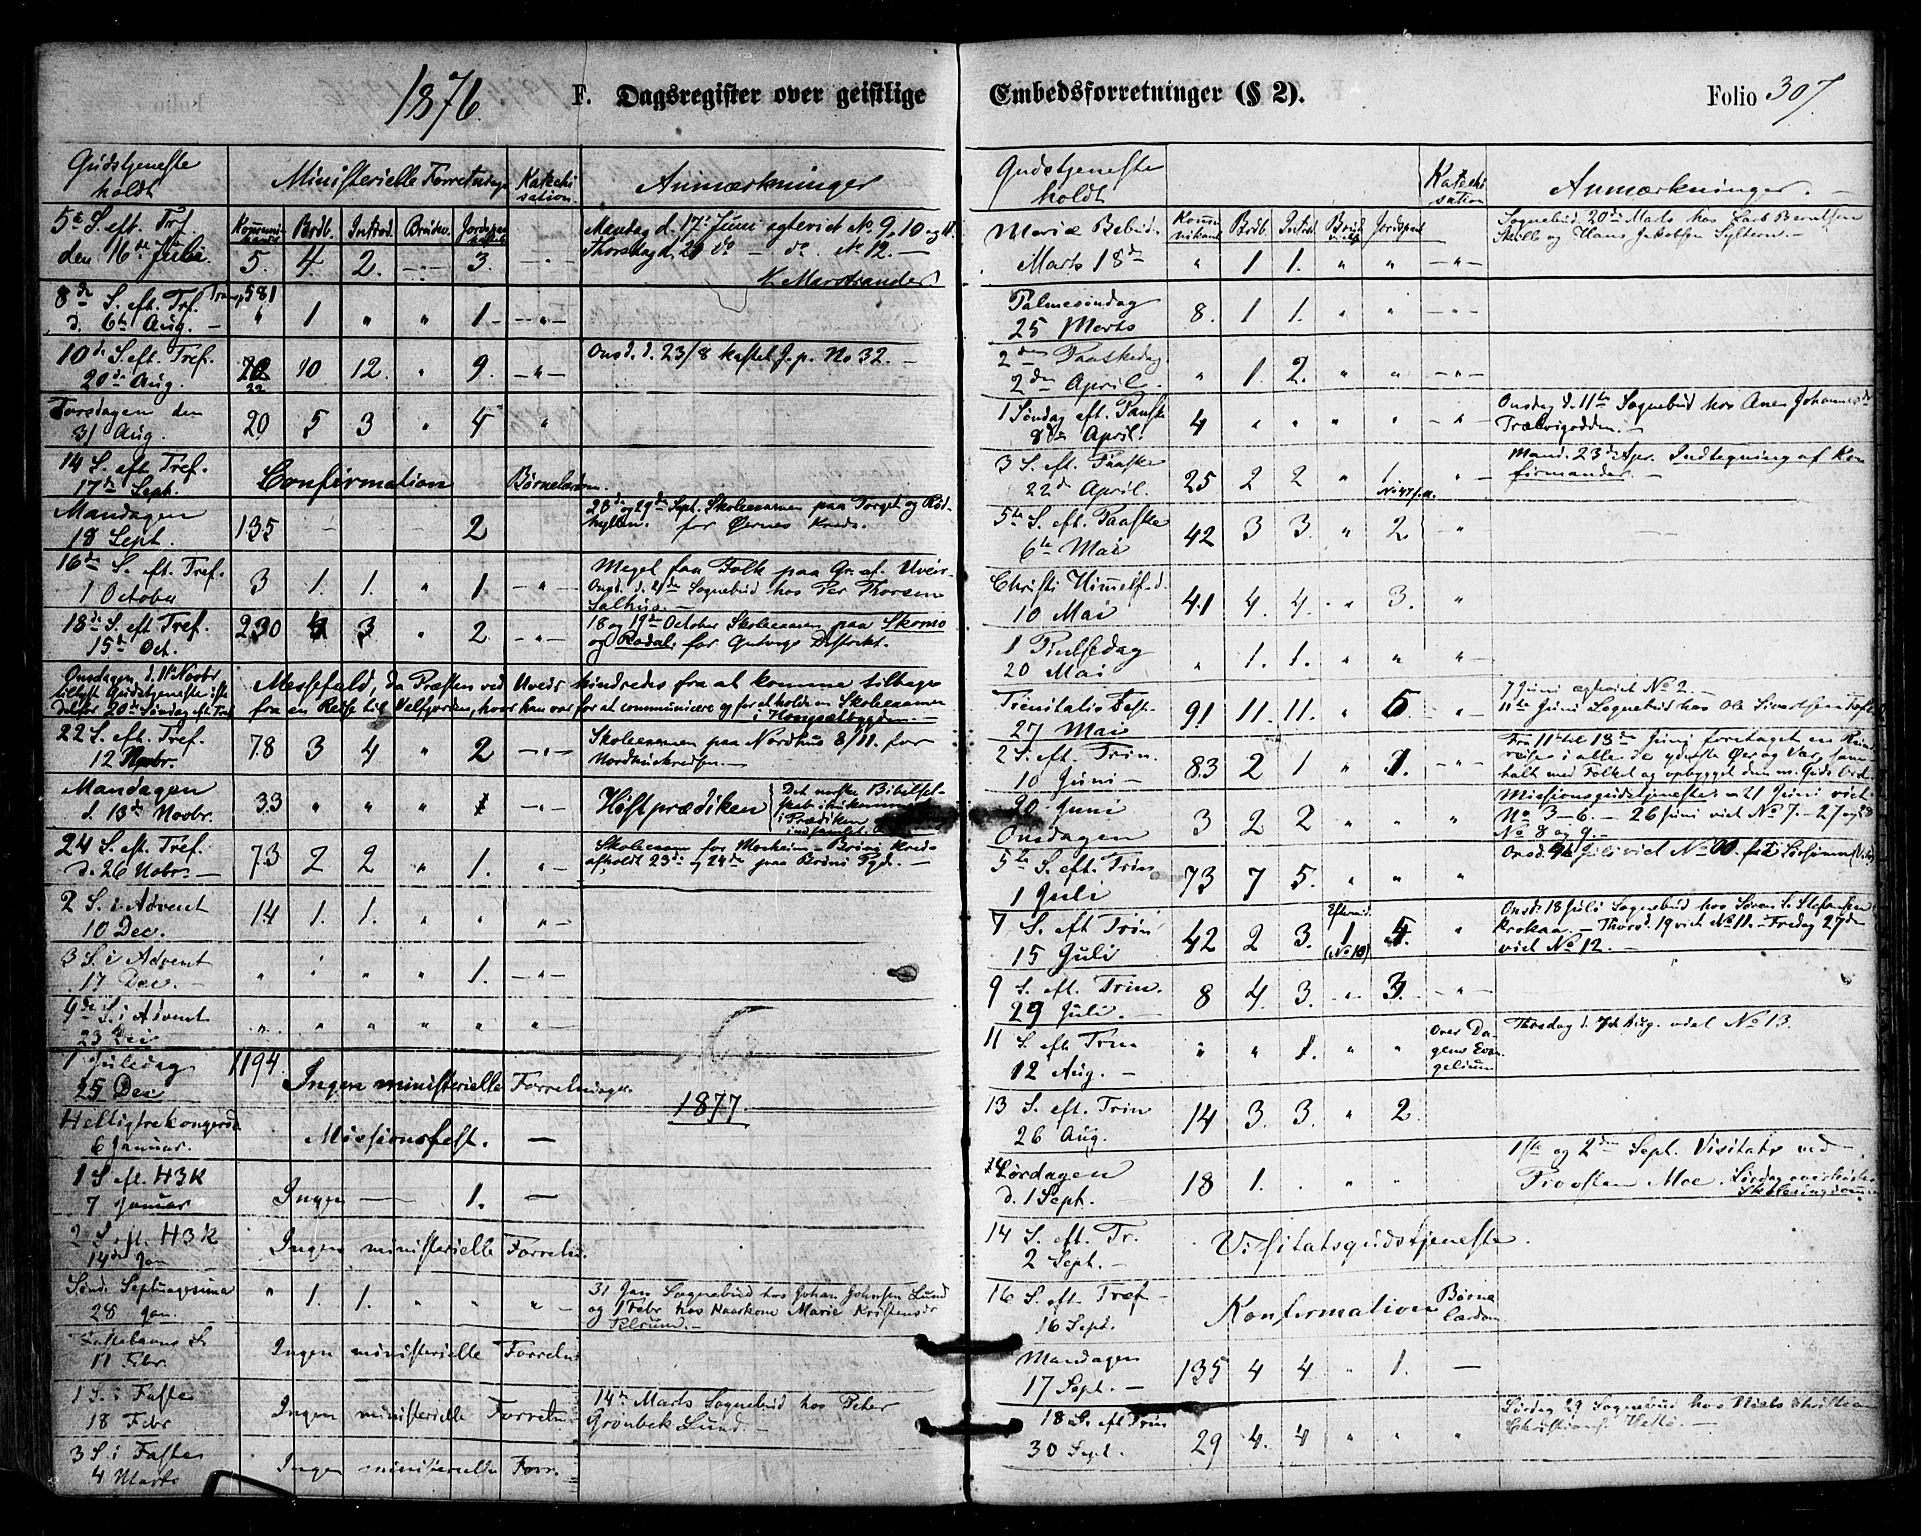 1876.
F. Dagsregister over geistlige
Gudstjeneste holdt
Ministerielle Forretninger
Katechisation.
Anmærkninger
5te S. eft. Tref.
den 16de Juli.
Kommunikanter Brdb. Introd. Brudev. Jordspaakastelse
5. 4. 2. — 3. — " —
Mandag d. 17de Juni agtervid No. 9, 10 og 11.
Thorsdag d. 20 do — do. No. 12. —
Marstrander
8de S. eft. Tref. Transp. 581
d. 6te Aug. — " 1 " " 1 — — " —
10de S. eft. Tref.
20de Aug. 22 10 12. " 9. — " —
Onsd. d. 23/8 kastet J. p. No 32. —
Torsdagen den
31 Aug. 20 5 3 " 4 "
14 S. eft. Tref.
17de Sept. Confirmation Børnelærdom.
Mandagen
18 Sept. 135 — — 2
28de og 29de Sept. Skoleexamen paa Torget og Rødhylten. for Ørnes Kreds.
16de S. eft. Tref.
1 October 3 1. 1. " 1 — " —
Meget faa Folk paa Gr. af Uveir —
Onsd. d. 4de Sognebud hos Per Thorsen
Salhus. —
18de S. eft Tref.
15de Oct. 230 4 3 " 2 — " —
18 og 19de October Skoleexamen paa Skomo
og Rodal, for Distrikt.
Onsdagen d. 1ste Novbr.
tillyst Gudstjeneste iste-
detfor 20de Søndag eft Tref
Messefald, da Præsten ved Uveir hindredes fra at komme tilbage
fra en Reise til Velfjorden, hvor han var for at communicere og for at holde en Skoleexamen
22 S. eft. Tref.
12 Novbr. 78 3 4 " 2 — " —
Skoleexamen paa Nordhus 8/11. for
Nordhuskredsen. —
Mandagen
d. 13de Novbr. 33 " " " 1 — " —
Høstprædiken
Det norske Bibelsel-
skab ihukommet
i Prædiken
24 S. eft. Tref.
d. 26 Nobr. — 73 2 2 " 1. —
Skoleexam for Mosheim — Brøni Kreds
afholdt 23de og 24de paa Brøni Pgd. —
2 S. i Advent
10 Dec. 14 1. 1. " " "
3 S. i Advent
17 Dec. " " " " 1. — " —
4de S. i Advent
23 Dec " " " " " "
1 Juledag
25 Dec 1194. Ingen ministerielle Forretninger.
1877.
Helligtrekongersd.
6 Januar. Missionsfest. —
1 S. eft. H3K
7 Januar Ingen — 1. —
2 S. eft. H3K
14de Jan Ingen ministerielle Forretn.
Sønd. Septuagesima
28 Jan. " 1. 1. " " " —
31 Jan Sognebud hos Johan Johnsen Lund
og 1 Febr hos Marie Kristensdr
Fastelavns S.
11 Febr. Ingen ministerielle Forretn
1 S. i Faste
18 Febr Ingen ministerielle Forretn
14de Marts Sognebud hos Peter
Grønbek Lund —
3 S. i Faste
4 Marts Ingen ministerielle Forr.
Embedsforretninger (§ 2).
Folio 307
Gudstjeneste holdt
Katechisation
Anmærkninger. —
Mariæ Bebud.
Marts 18de
Kommunikant Brdb. Introd. Brudvielse Jordspaak
" 1 1. " " — " —
Sognebud 20de Marts hos Lars Berntsen
og Hans Jakobsen Sylteren. —
Palmesøndag
25 Marts 8. 1 1. " " — " —
2den Paaskedag
2den April. " 1. 2. " " — " —
1 Søndag eft. Paaske
8de April. 4 " " " " — " —
Onsdag d. 11te Sognebud hos Ane Johannesdr
Trælvigodden. —
3 S. eft. Paaske
22de April. 25 2 2 " 1 "
No 47 f. A.
Mand. 23de Apr. Indtegning af Kon-
firmander. —
5te S. eft. Paaske
6te Mai 42 3 3. " 2 "
Christi Himmelf. d.
10 Mai 41 4. 4. " 3. "
1 Pintsedag
20 Mai " 1. 1. " " "
Trinitatis Fest.
27 Mai 91 11. 11. " 5. "
7 Juni agtevid No 2. —
11te Juni Sognebud hos Ole Sivertsen
2 S. eft. Trin.
10 Juni — 83 2 1 " 1. — " —
Fra 11te til 18de Juni foretaget en Rund-
reise i alle de yderste Øer og Vær, sam-
talt med Folket og opbygget dem m. Guds Ord.
20 Juni
Onsdagen 3 2 2 " " "
Missionsgudstjeneste. — 21 Juni vid
No 3 — 6. — 26 Juni vid No 7. — 27 og 28
No 8 og 9. —
5te S. eft. Trin
1 Juli 73 7 5. " " "
7 S. eft Trin
15 Juli 42 2 3. Eftermid. 1 (No 10) 4. "
Onsd. 18 Juli Sognebud hos Søren S. Stefansen
Krokaa. — Thorsd. 19 vid No 11. — Fredag 27de
vied No 12. —
9 S. eft. Trin.
29 Juli. — 8 4. 3. " 3. — " —
11 S. eft. Trin
12 Aug. — " " 1. " " Over Dagens Evangelium
Thorsdag d. Aug. viel No 13.
13 S. eft. Trin
26 Aug. 14 3. 3. " 2.
Lørdagen
d. 1 Sept. — 18 1. " " "
1ste og 2den Sept. Visitats ved
Provsten Moe. Lørdag overhørtes
Skoleungdommen
14 S. eft. Tr.
2 Sept. — Visitatsgudstjeneste.
16 S. eft. Tref —
16 Sept. Konfirmation Børnelærdom
Mandagen
17 Sept. — 135 4 4 " 1. —
18 S. eft Trin
30 Sept. 29 4. 4 " " "
Lørdag 29 Sognebud hos Niels Christian